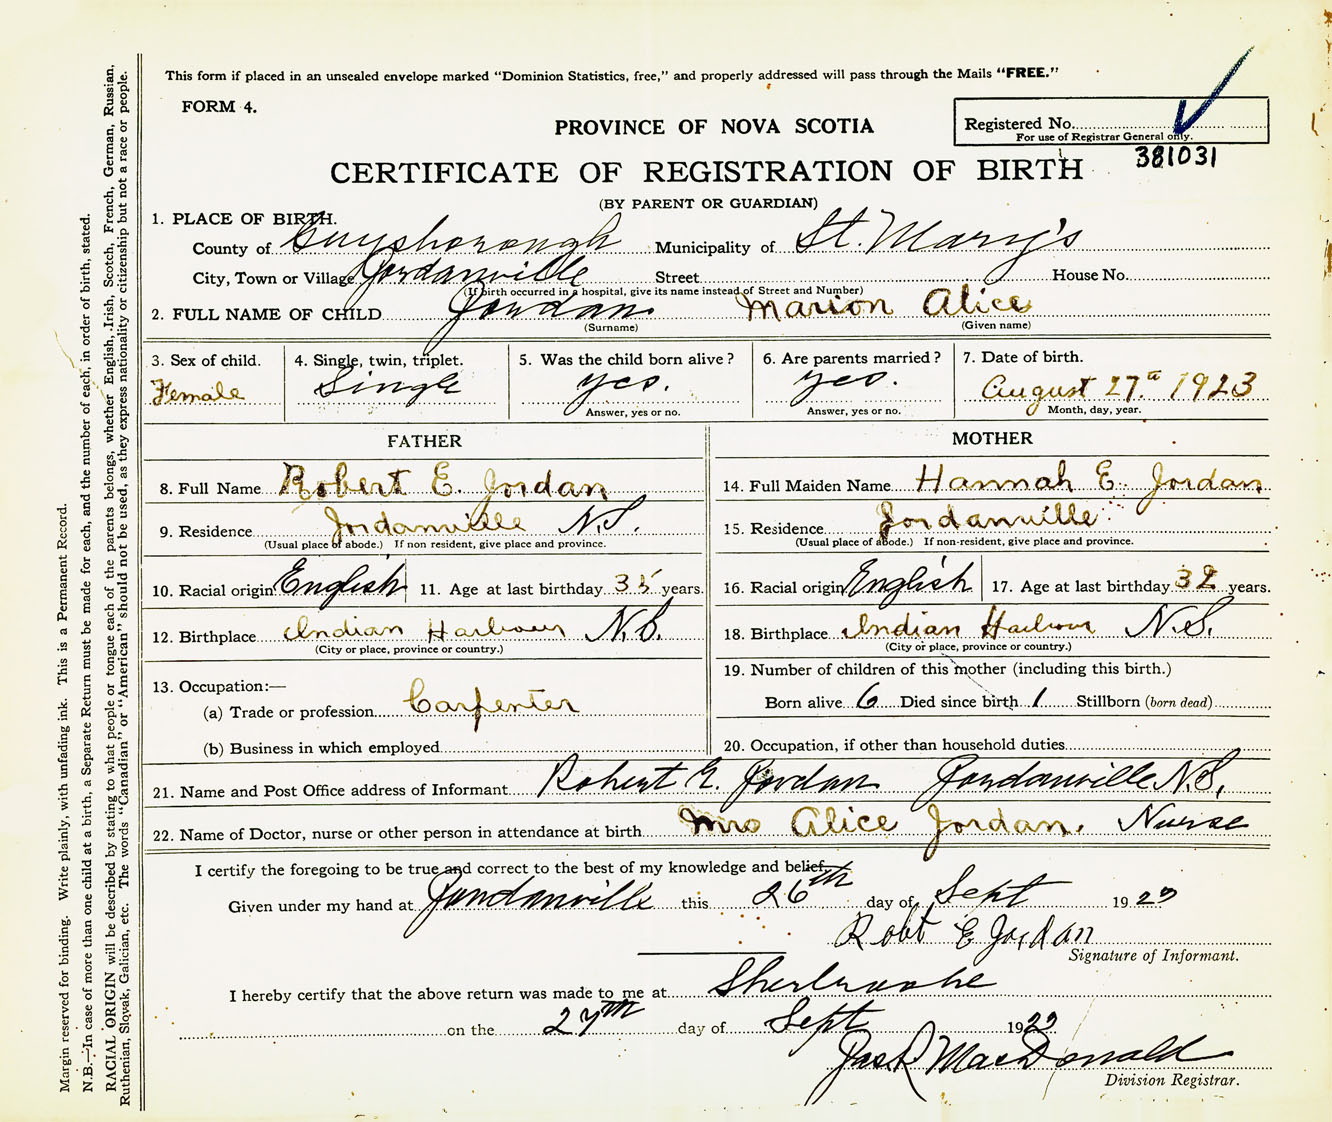 This form if placed in an unsealed envelope marked "Dominion Statistics, free," and properly addressed will pass through the Mails "FREE."
FORM 4.
Registered No.
For use of Registrar General only.
PROVINCE OF NOVA SCOTIA
381031
CERTIFICATE OF REGISTRATION OF BIRTH
(BY PARENT OR GUARDIAN)
1. PLACE OF BIRTH.
County of Guysborough Municipality of St. Mary's
City, Town or Village Jordanville Street House No.
(If birth occurred in a hospital, give its name instead of Street and Number)
2. FULL NAME OF CHILD Jordan Marion Alice
(Surname) (Given name)
3. Sex of child. 4. Single, twin, triplet. 5. Was the child born alive? 6. Are parents married? 7. Date of birth.
Female Single yes. yes. August 27th 1923
Answer, yes or no. Answer, yes or no. Month, day, year.
FATHER MOTHER
8. Full Name Robert E. Jordan 14. Full Maiden Name Hannah E. Jordan
9. Residence Jordanville N.S. 15. Residence Jordanville
(Usual place of abode.) If non resident, give place and province. (Usual place of abode.) If non-resident, give place and province.
10. Racial origin English 11. Age at last birthday 35 years. 16. Racial origin English 17. Age at last birthday 32 years.
12. Birthplace Indian Harbour N.S. 18. Birthplace Indian Harbour N.S.
(City or place, province or country.) (City or place, province or country.)
13. Occupation:— 19. Number of children of this mother (including this birth.)
(a) Trade or profession Carpenter Born alive 6 Died since birth 1 Stillborn (born dead)
(b) Business in which employed 20. Occupation, if other than household duties
21. Name and Post Office address of Informant Robert E. Jordan Jordanville N.S.
22. Name of Doctor, nurse or other person in attendance at birth Mrs Alice Jordan. Nurse
I certify the foregoing to be true and correct to the best of my knowledge and belief.
Given under my hand at Jordanville this 26th day of Sept 1923
Robt E Jordan
Signature of Informant.
I hereby certify that the above return was made to me at Sherbrooke
on the 27th day of Sept 1923
Jas R MacDonald
Division Registrar.
Margin reserved for binding. Write plainly, with unfading ink. This is a Permanent Record.
N.B.—In case of more than one child at a birth, a Separate Return must be made for each, and the number of each, in order of birth, stated.
RACIAL ORIGIN will be described by stating to what people or tongue each of the parents belongs, whether English, Irish, Scotch, French, German, Russian,
Ruthenian, Slovak, Galician, etc. The words "Canadian" or "American" should not be used, as they express nationality or citizenship but not a race or people.